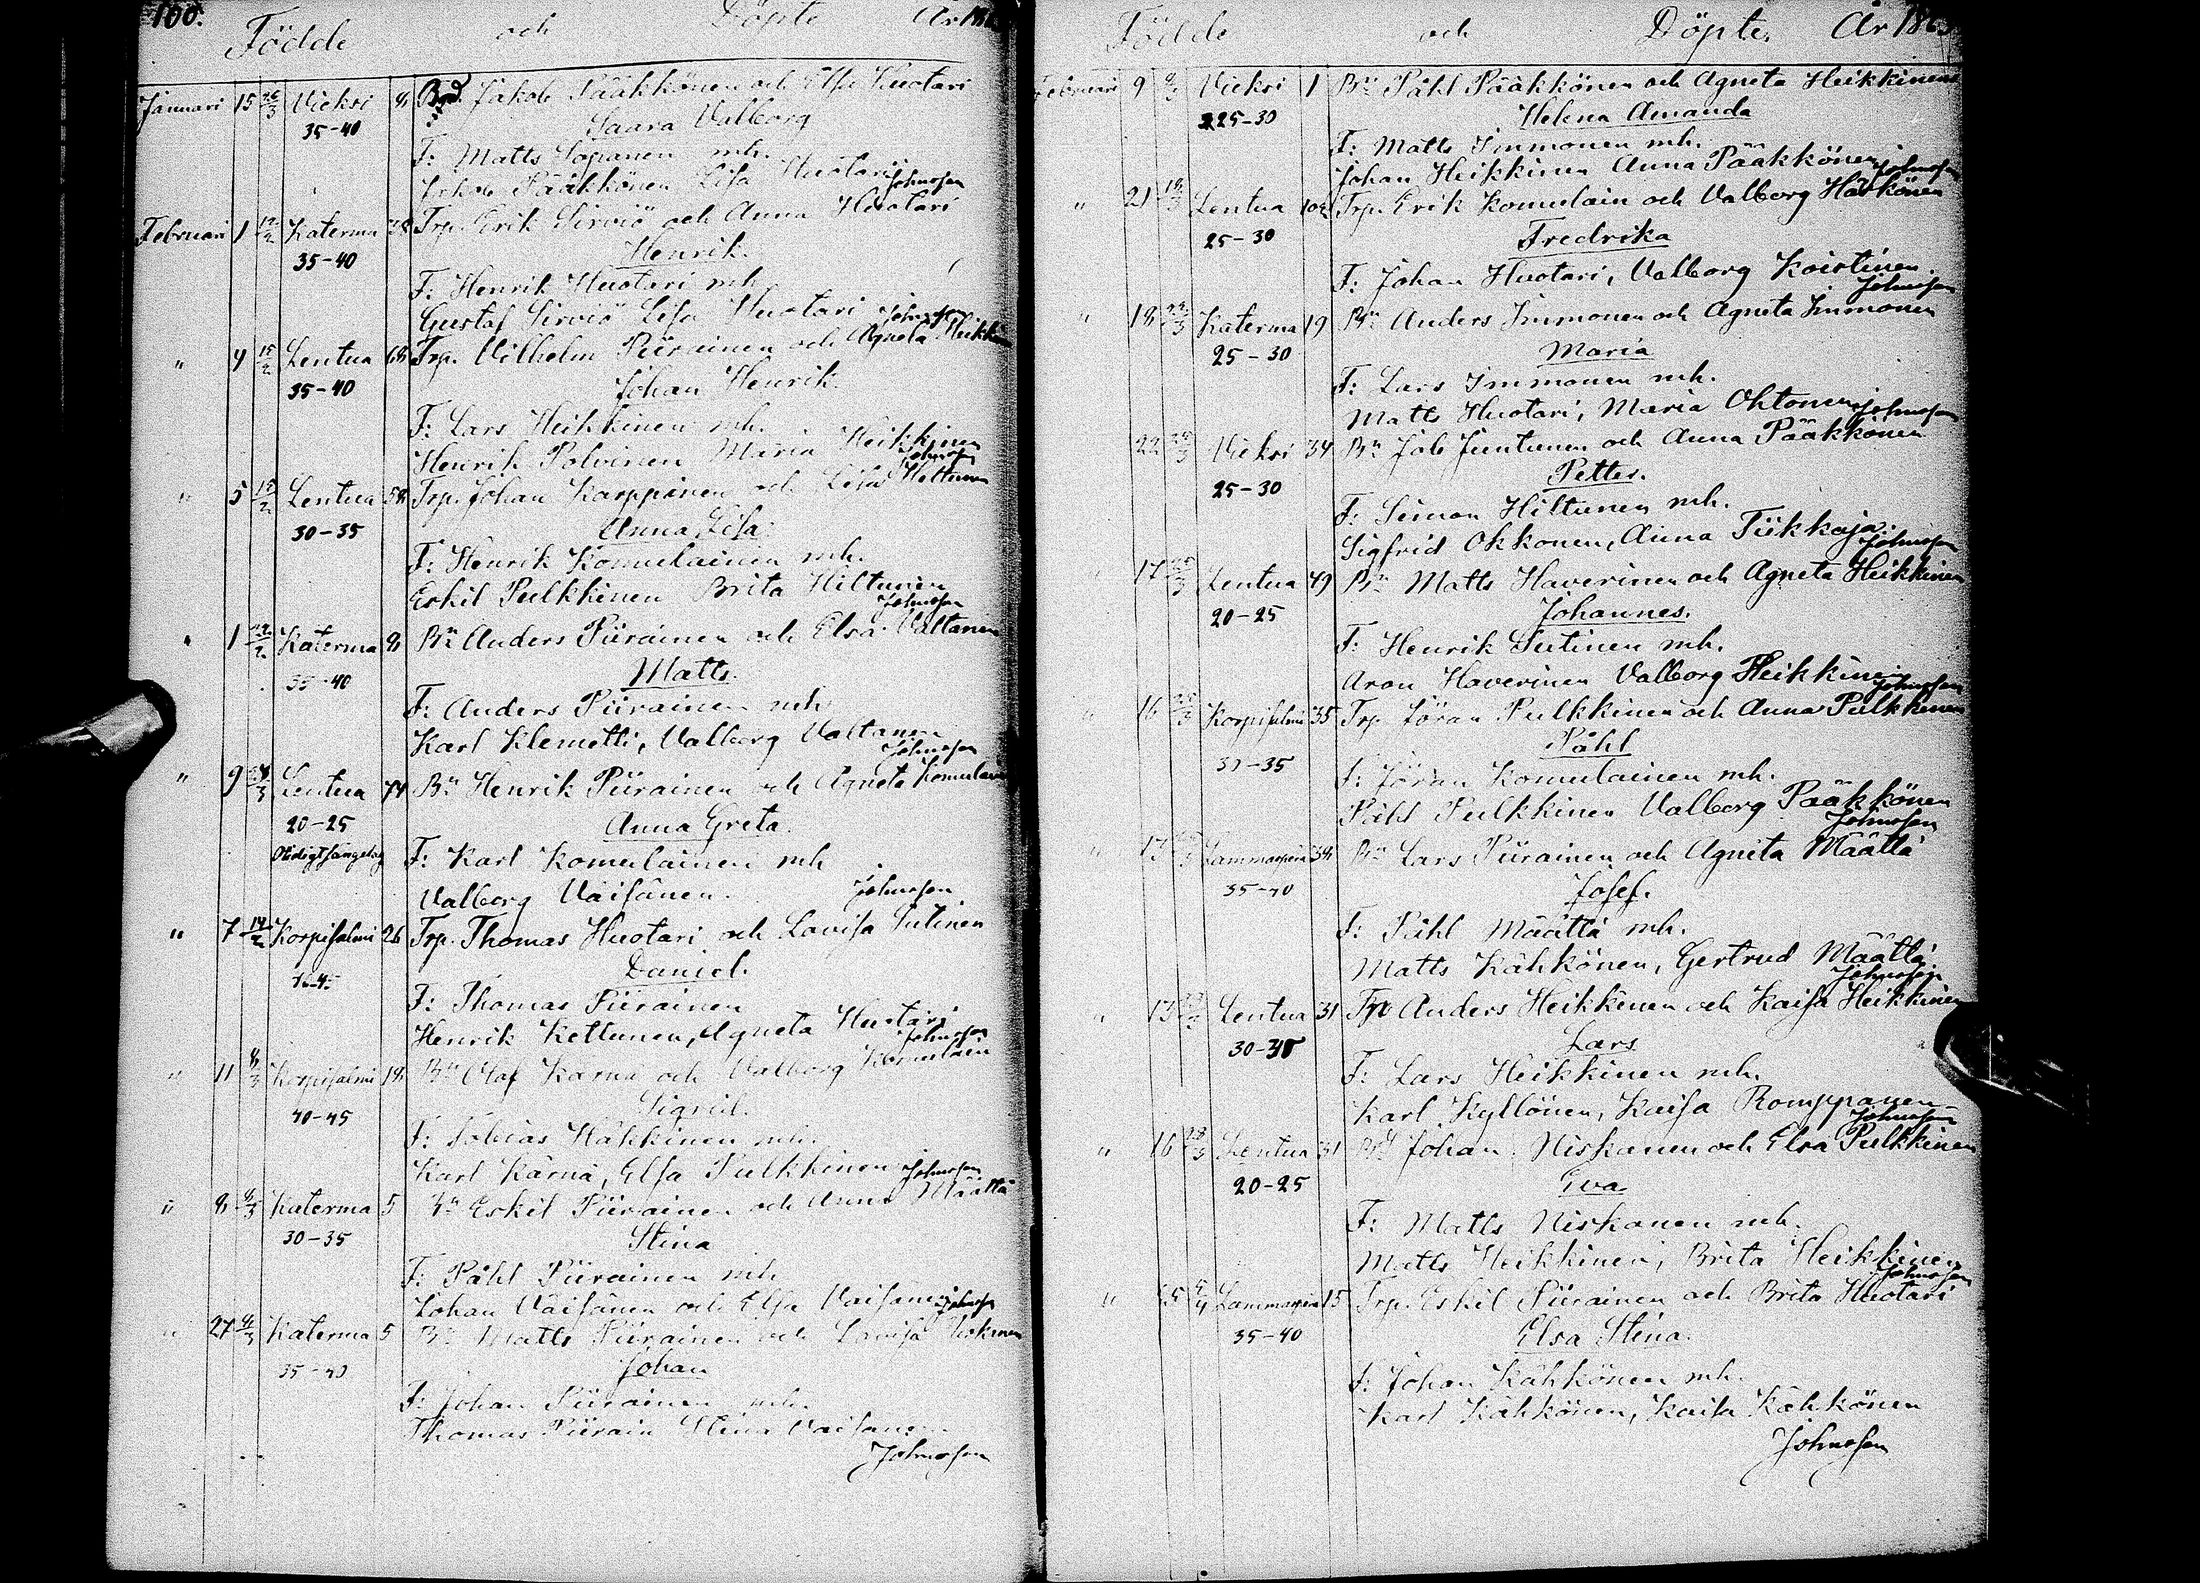 100.
Födde och Döpte År 186
Januari 15 26/3 Vieksi 8 Bgd. Jakob Pääkkönen och Elsa Huotari
35-40 Saara Valborg
F: Matts Sopanen mh.
Jakob Pääkkönen Lisa Huotari Johnsson
Februari 1 12/2 Katerma 28 Trp. Erik Sirviö och Anna Huotari
35-40 Henrik.
F: Henrik Huotari mh.
Gustaf Sirviö Lisa Huotari Johnsson
" 4 15/2 Lentua 68 Trp. Vilhelm Piirainen och Agneta Heikkin
35-40 Johan Henrik.
F: Lars Heikkinen mh.
Henrik Polvinen Maria Heikkinen
Johnsson
" 5 15/2 Lentua 58 Trp. Johan Karppinen och Lisa Heltunen
30-35 Anna Lisa.
F: Henrik Komulainen mh.
Eskil Pulkkinen Brita Hiltunen
Johnsson
" 1 /2 Katerma 8 Bn Anders Piirainen och Elsa Valtanen
35-40 Matts.
F: Anders Piirainen mh.
Karl Klemetti, Valborg Valtanen
Johnsson
" 9 /3 Lentua 74 Bn Henrik Piirainen och Agneta Komulain
20-25 Anna Greta.
F: Karl Komulainen mh
Valborg Väisänen. Johnsson
" 7 14/2 Korpisalmi 26 Trp. Thomas Huotari och Lovisa Sutinen
Daniel.
F: Thomas Piirainen
Henrik Kettunen, Agneta Huotari
Johnsson
" 11 8/3 Korpisalmi 18 Bn Olaf Karna och Valborg Komulain
40-45 Sigrid.
F: Tobias Häkkinen mh.
Karl Kärnä, Elsa Pulkkinen Johnsson
" 8 8/3 Katerma 5 Bn Eskil Piirainen och Anna Määttä
30-35 Stina
F: Påhl Piirainen mh
Johan Väisänen och Elsa Väisänen Johnsson
" 27 8/3 Katerma 5 Bn Matts Piirainen och Lovisa
35-40 Johan
F: Johan Piirainen mh.
Thomas Piirain Stina Väisänen
Johnsson
Födde och Döpte. År 186
Februari 9 9/3 Vieksi 1 Bn Påhl Pääkkönen och Agneta Heikkinen
25-30 Helena Amanda
F: Matts Immonen mh.
Johan Heikkinen Anna Pääkkönen Johnsson
" 21 18/3 Lentua 102 Trp. Erik Komulain och Valborg Härkönen
25-30 Fredrika
F: Johan Huotari, Valborg Koistinen.
Johnsson
" 18 /3 Katerma 19 Bn Anders Immonen och Agneta Immonen
25-30 Maria
F: Lars Immonen mh.
Matts Huotari, Maria Ohtonen Johnsson
22 /3 Vieksi 34 Bn Job Juntunen och Anna Pääkkönen
25-30 Petter.
F: Simon Hiltunen mh.
Sigfrid Okkonen, Anna Tiikkaja.
Johnsson
" 17 /3 Lentua 49 Bn Matts Haverinen och Agneta Heikkinen
20-25 Johannes.
F: Henrik Sutinen mh.
Aron Haverinen Valborg Heikkinen
Johnsson
" 16 25/3 Korpisalmi 35 Trp Jöran Pulkkinen och Anna Pulkkinen
30-35 Påhl
F: Jöran Komulainen mh.
Påhl Pulkkinen Valborg Pääkkönen
Johnsson
" 13 /3 Lammasperä 38 Bn Lars Piirainen och Agneta Määttä
35-40 Josef.
F: Påhl Määttä mh.
Matts Kähkönen, Gertrud Määttä
Johnsson
" 13 Lentua 31 Trp Anders Heikkinen och Kaisa Heikkinen
30-35 Lars
F: Lars Heikkinen mh.
Karl Kyllönen, Kaisa Romppanen
Johnsson
" 16 28/3 Lentua 31 Johan Niskanen och Elsa Pulkkinen
20-25 Eva
F: Matts Niskanen mh.
Matts Heikkinen, Brita Heikkinen
Johnsson
" Lammasperä 15 Trp. Eskil Piirainen och Brita Huotari
35-40 Elsa Stina.
F: Johan Kähkönen mh.
Karl Kähkönen, Kaisa Kähkönen
Johnsson